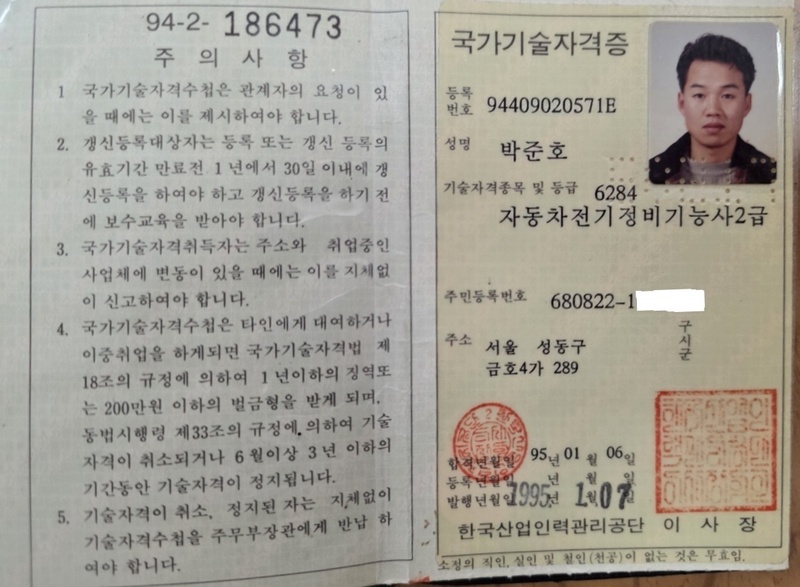 94-2- 186473
주 의 사 항
1 국가기술자격수첩은 관계자의 요청이 있
을 때에는 이를 제시하여야 합니다.
2. 갱신등록대상자는 등록 또는 갱신 등록의
유효기간 만료전 1년에서 30일 이내에 갱
신등록을 하여야 하고 갱신등록을 하기 전
에 보수교육을 받아야 합니다.
3. 국가기술자격취득자는 주소와 취업중인
사업체에 변동이 있을 때에는 이를 지체없
이 신고하여야 합니다.
4. 국가기술자격수첩은 타인에게 대여하거나
이중취업을 하게되면 국가기술자격법 제
18조의 규정에 의하여 1년이하의 징역또
는 200만원 이하의 벌금형을 받게 되며,
동법시행령 제33조의 규정에 의하여 기술
자격이 취소되거나 6월이상 3년 이하의
기간동안 기술자격이 정지됩니다.
5. 기술자격이 취소, 정지된 자는 지체없이
기술자격수첩을 주무부장관에게 반납 하
여야 합니다.
국가기술자격증
등록
번호 94409020571E
성명 박준호
기술자격종목 및 등급 6284
자동차전기정비기능사2급
주민등록번호 680822-1
주소 서울 성동구
금호4가 289
구
시
군
합격년월일 95년 01 월 06일
등록년월일 년 월 일
발행년월일 1995년 1월 07
한국산업인력관리공단 이 사 장
소정의 직인, 실인 및 철인(천공)이 없는 것은 무효임.